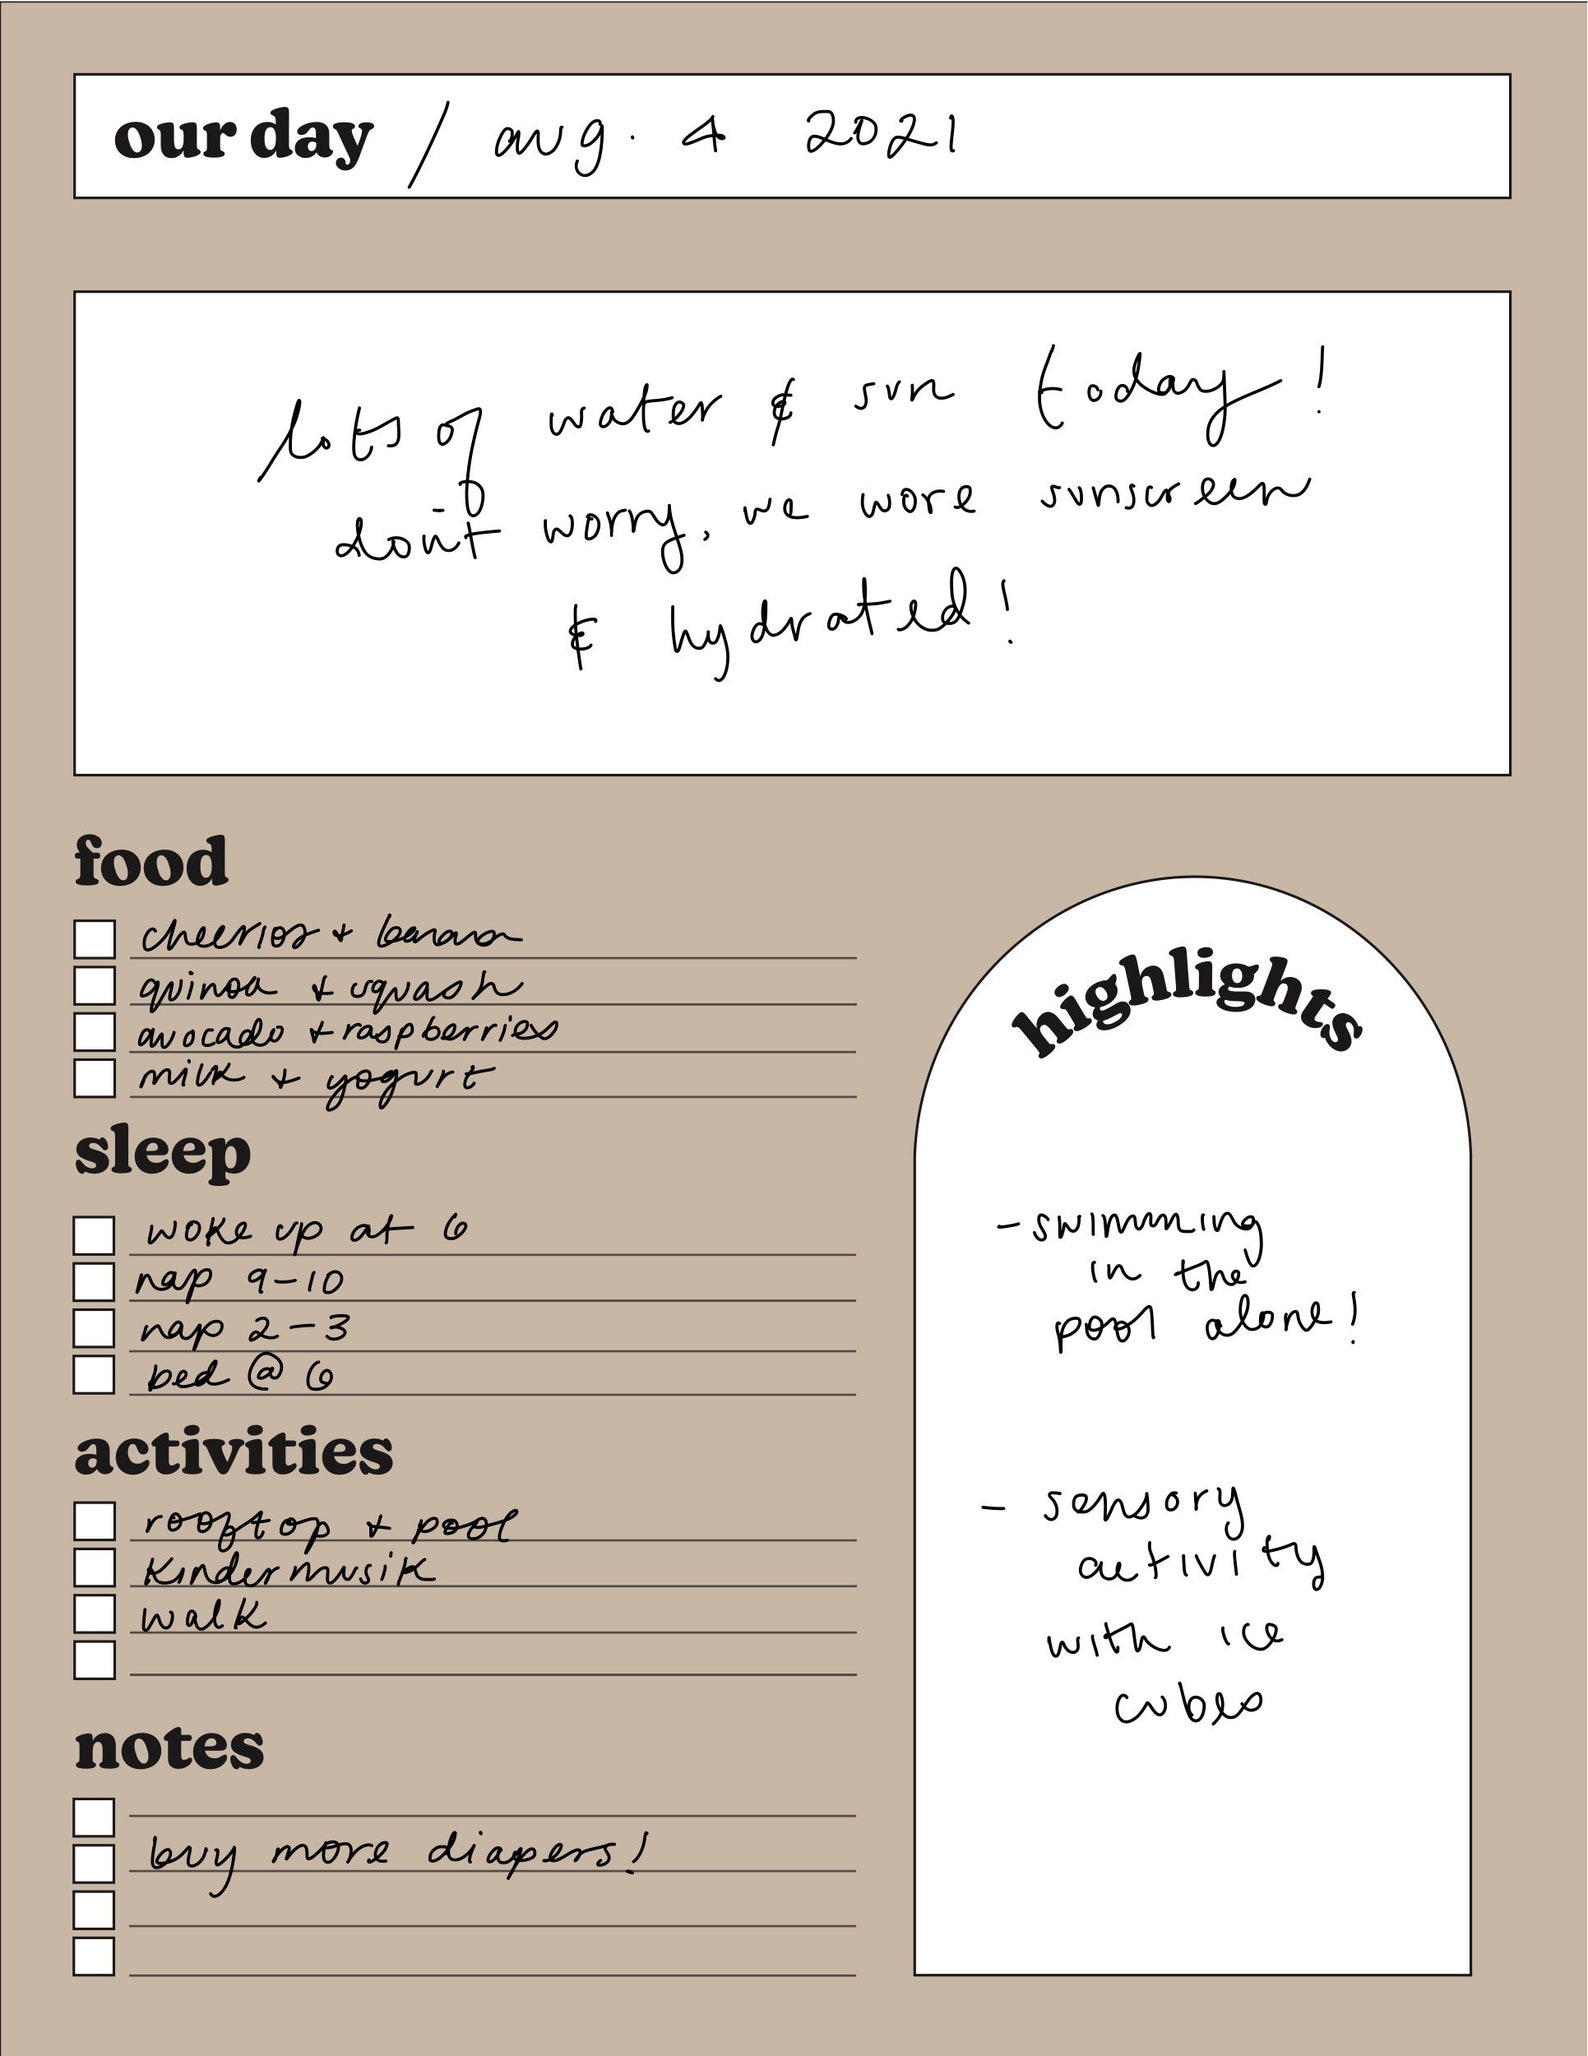 our day / aug. 4 2021
lots of water & sun today!
don't worry, we wore sunscreen
& hydrated!
food
cheerios + banana
quinoa + squash
avocado + raspberries
milk + yogurt
sleep
woke up at 6
nap 9-10
nap 2-3
bed @ 6
activities
rooftop + pool
Kindermusik
walk
notes
buy more diapers!
highlights
- swimming
in the
pool alone!
- sensory
activity
with ice
cubes